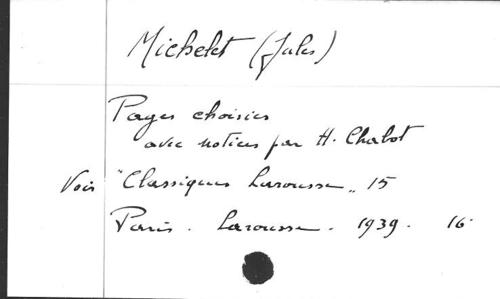 Michelet (Jules)
Pages choisies
avec notices par H. Chabot
Voir "Classiques Larousse" 15
Paris. Larousse. 1939. 16°